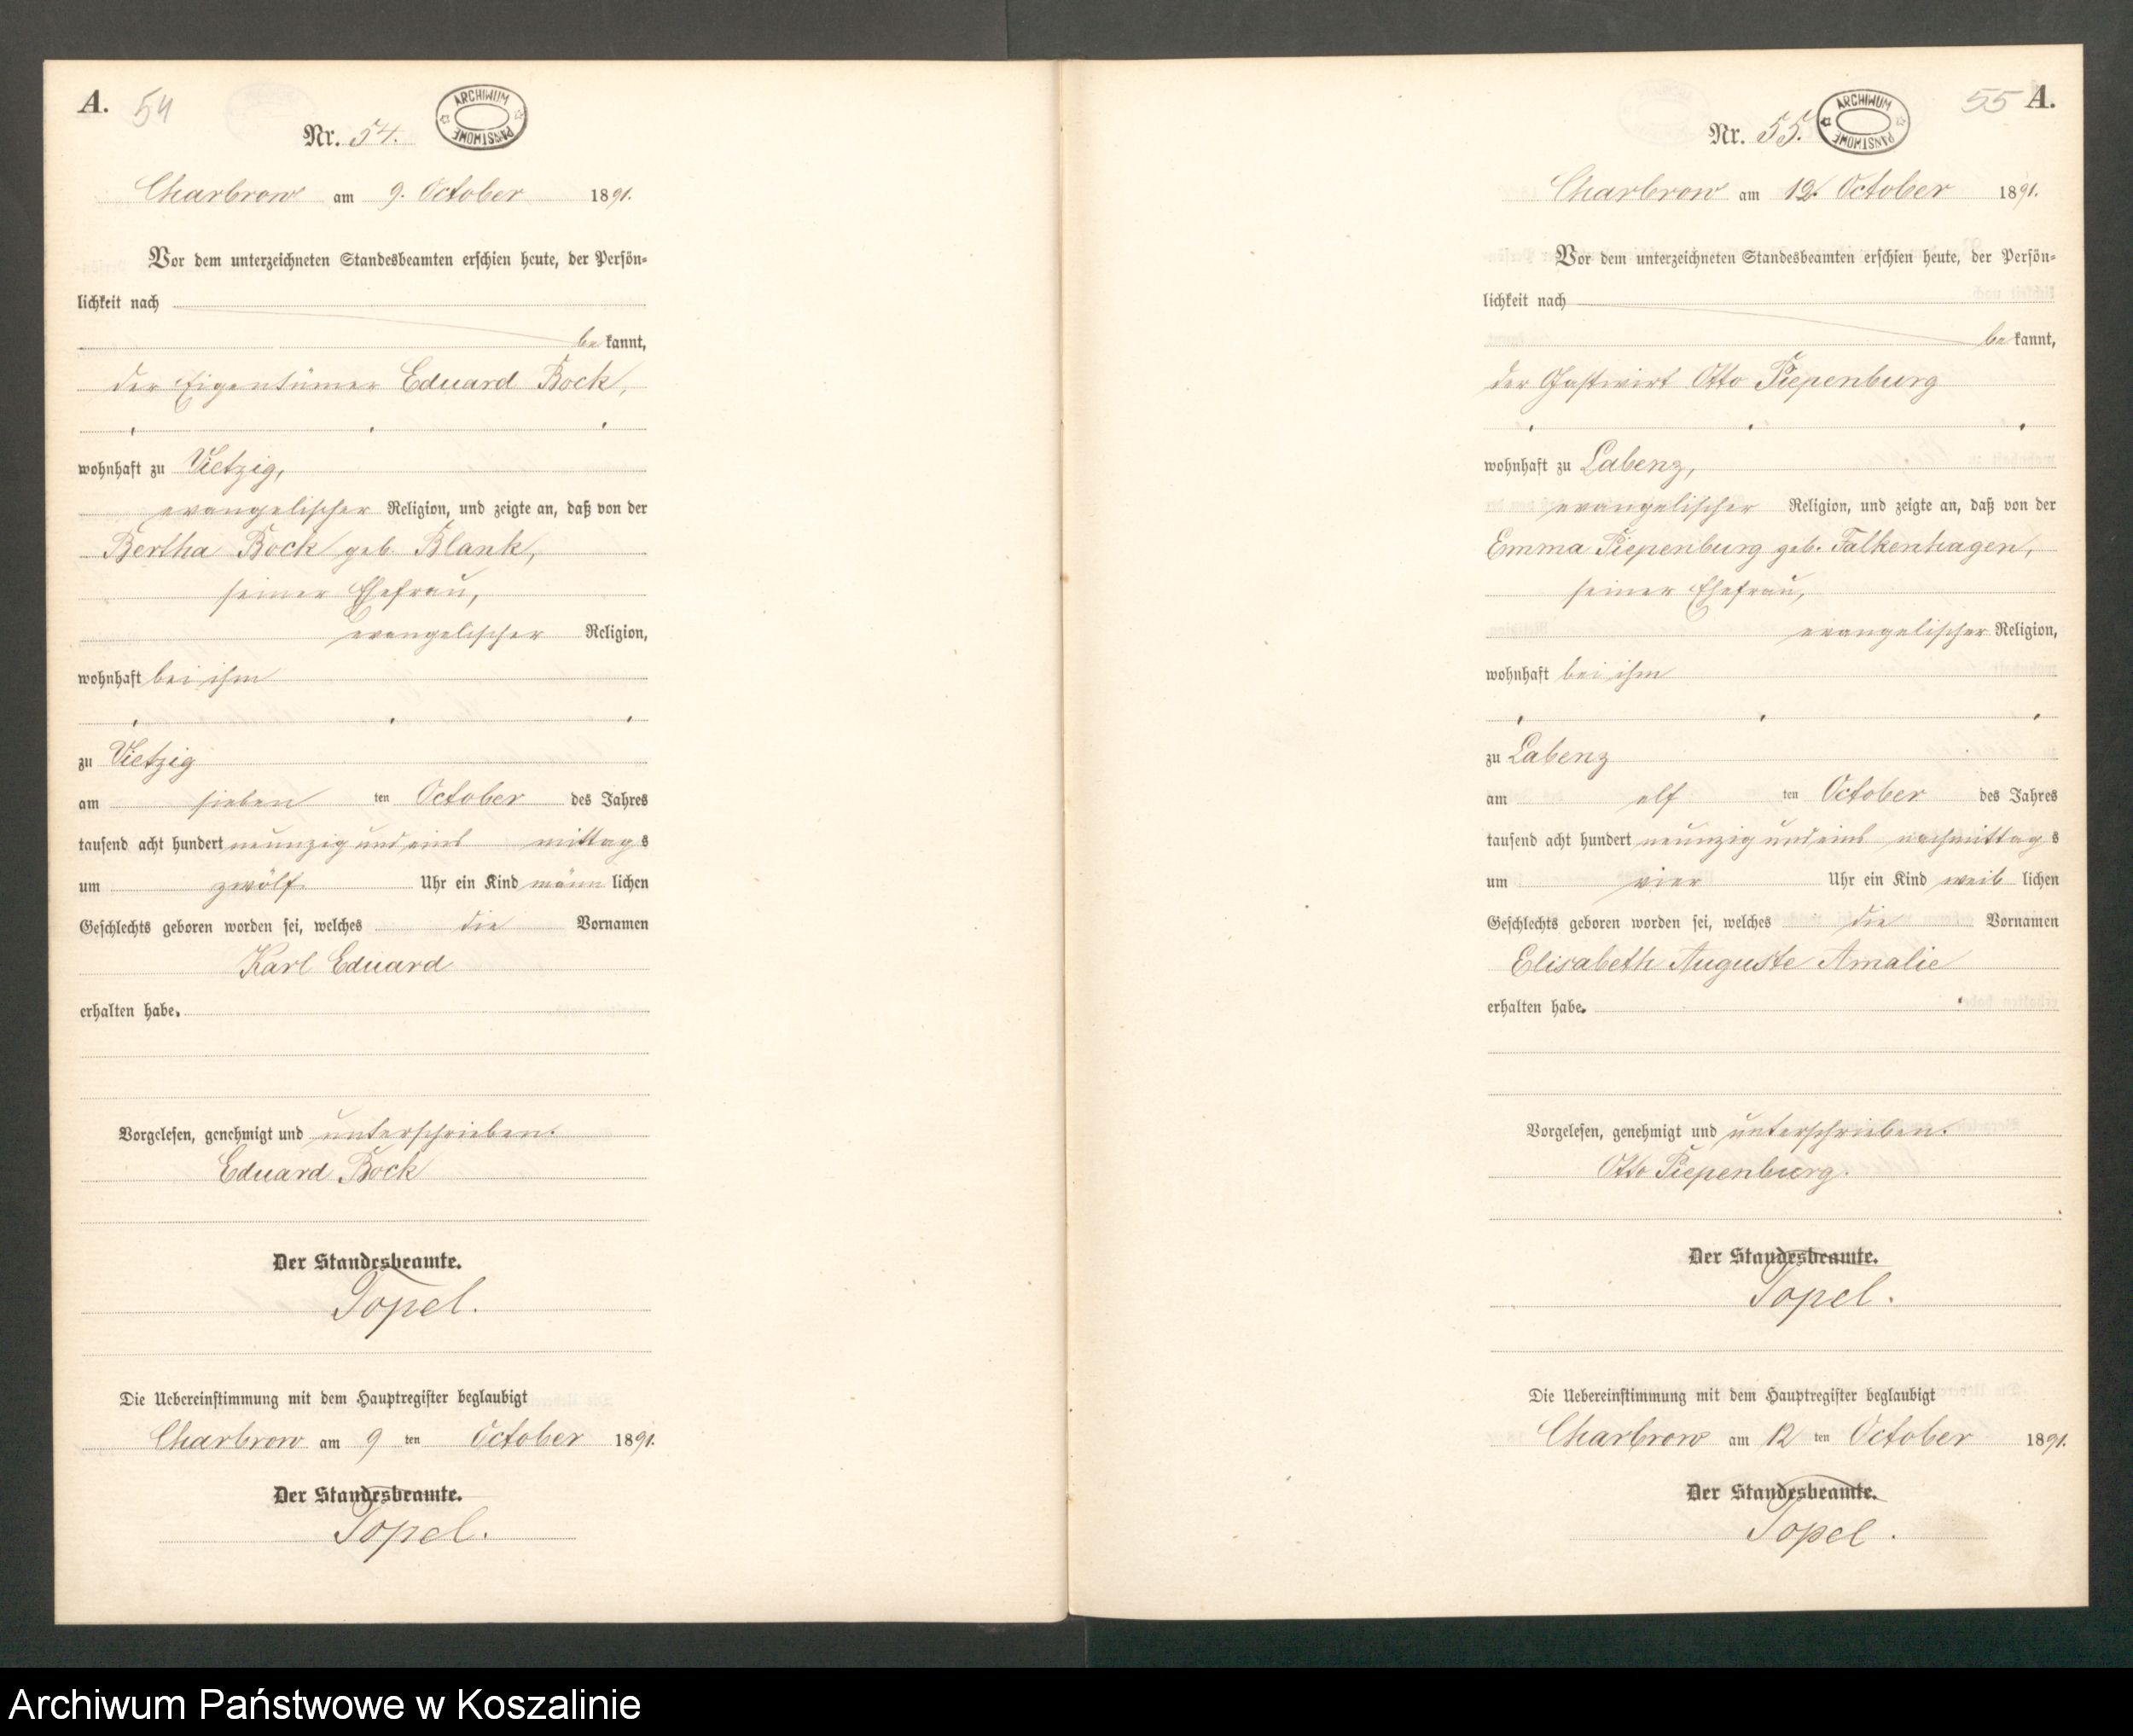 A. 54
Nr. 54.
ARCHIWUM PAŃSTWOWE
Charbrow am 9. October 1891.
Vor dem unterzeichneten Standesbeamten erschien heute, der Persön-
lichkeit nach
bekannt,
der Eigentümer Eduard Bock,
wohnhaft zu Vietzig,
evangelischer Religion, und zeigte an, daß von der
Bertha Bock geb. Blank,
seiner Ehefrau,
evangelischer Religion,
wohnhaft bei ihm
zu Vietzig
am sieben ten October des Jahres
tausend acht hundert neunzig und eins mittags
um zwölf Uhr ein Kind männlichen
Geschlechts geboren worden sei, welches die Vornamen
Karl Eduard
erhalten habe.
Vorgelesen, genehmigt und unterschrieben.
Eduard Bock
Der Standesbeamte.
Topel.
Die Uebereinstimmung mit dem Hauptregister beglaubigt
Charbrow am 9 ten October 1891.
Der Standesbeamte.
Topel.
55 A.
Nr. 55.
ARCHIWUM PAŃSTWOWE
Charbrow am 12. October 1891.
Vor dem unterzeichneten Standesbeamten erschien heute, der Persön-
lichkeit nach
bekannt,
der Gastwirt Otto Piepenburg
wohnhaft zu Labenz,
evangelischer Religion, und zeigte an, daß von der
Emma Piepenburg geb. Falkenhagen,
seiner Ehefrau,
evangelischer Religion,
wohnhaft bei ihm
zu Labenz
am elf ten October des Jahres
tausend acht hundert neunzig und eins nachmittags
um vier Uhr ein Kind weiblichen
Geschlechts geboren worden sei, welches die Vornamen
Elisabeth Auguste Amalie
erhalten habe.
Vorgelesen, genehmigt und unterschrieben.
Otto Piepenburg.
Der Standesbeamte.
Topel.
Die Uebereinstimmung mit dem Hauptregister beglaubigt
Charbrow am 12 ten October 1891.
Der Standesbeamte.
Topel.
Archiwum Państwowe w Koszalinie